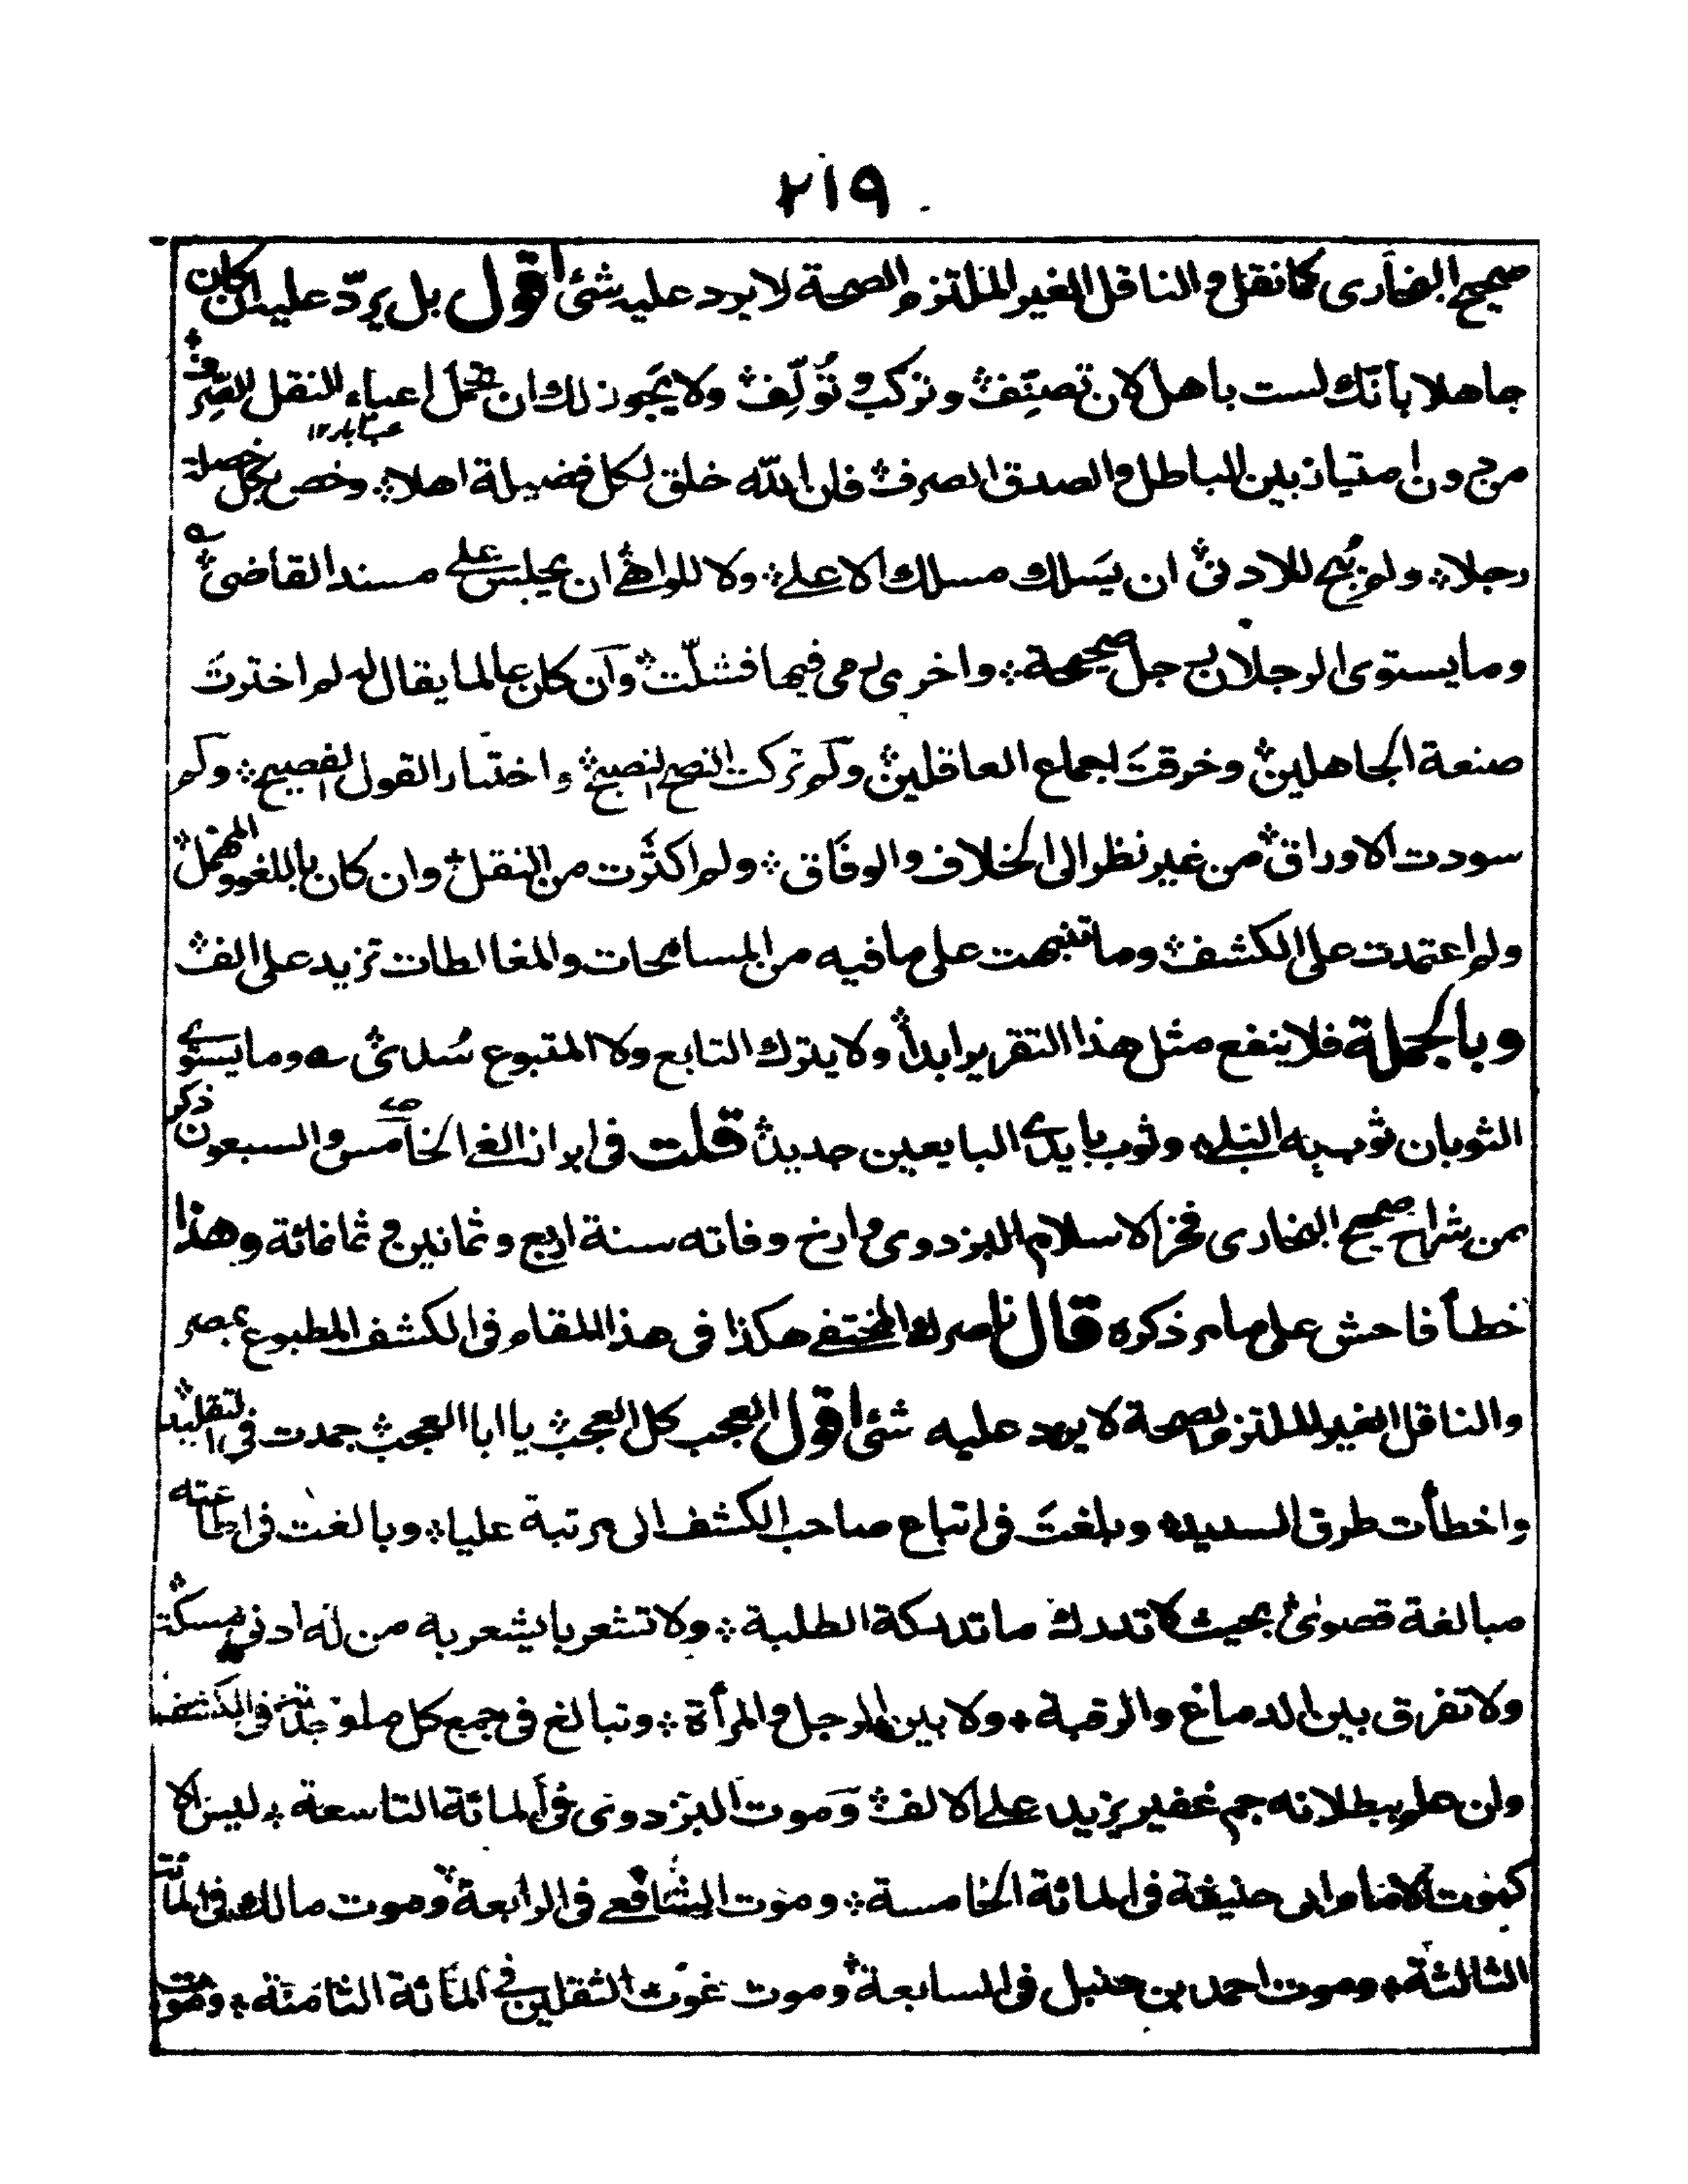 ٢١٩
صحيح البخارى كما نقل والناقل الغير الملتزم الصحة لا يرد عليه شئ اقول بل يردّ عليه ان كان
جاهلا بأنّك لست باهل لان تصنِّف ۞ وتركب وتُؤلِّف ۞ ولا يَجوز لك ان تحمل اعباء النقل الصِّرف ۞
من دون امتياز بين الباطل والصدق الصرف ۞ فان الله خلق لكل فضيلة اهلا ۞ وخص بكل خصلة
رجلا ۞ ولم يُبح للادنى ۞ ان يَسلك مسلك الاعلے ۞ ولا للواهی ان يجلس علے مسند القاضى ۞ ؎
وما يستوى الرجلان رجل صحيحة ۞ واخرى رمى فيها فشلّت ۞ وان كان عالما يقال له لم اخترتَ
صنعة الجاهلين ۞ وخرقتَ اجماع العاقلين ۞ ولم تركت النصح النصيح ۞ واختيار القول الفصيح ۞ ولم
سودت الاوراق ۞ من غير نظر الى الخلاف والوفاق ۞ ولم اكثَرت من النقل ۞ وان كان باللغو والمهمل ۞
ولم اعتمدت على الكشف ۞ وما تنبهت على ما فيه من المسامحات والمغالطات تزيد على الف ۞
وبالجملة فلا ينفع مثل هذا التقرير ابدا ۞ ولا يترك التابع ولا المتبوع سُدى ۞ ؎ وما يستوے
الثوبان ثوب به البلے ۞ وثوب بايدے البايعين جديد ۞ قلت فى ابراز الغے الخامس والسبعون ذكر
من شراح صحيح البخارى فخر الاسلام البزدوى وارخ وفاته سنة اربع وثمانين وثمانمائة وهذا
خطأ فاحش على ما مر ذكره قال ناصرك المختفے هكذا فى هذا المقام فى الكشف المطبوع بمصر
والناقل الغير الملتزم الصحة لا يرد عليه شئ اقول العجب كل العجب ۞ يا ابا العجب ۞ جمدت فى التقليد ۞
واخطأت طرق السديد ۞ وبلغتَ فى اتباع صاحب الكشف الى مرتبة عليا ۞ وبالغت فى اطاعته
مبالغة قصوىٰ ۞ بحيث لا تدرك ما تدركه الطلبة ۞ ولا تشعر بما يشعر به من له ادنى مسكة ۞
ولا تفرق بين الدماغ والرقبة ۞ ولا بين الرجل والمرأة ۞ وتبالغ فى جمع كل ما وجدته فى الكشف
وان علم ببطلانه جم غفير يزيد علے الالف ۞ وموت البزدوى فى المائة التاسعة ۞ ليس الا
كموت الامام ابى حنيفة فى المائة الخامسة ۞ وموت الشافعے فى الرابعة ۞ وموت مالك فى المائة
الثالثة ۞ وموت احمد بن حنبل فى السابعة ۞ وموت غوث الثقلين فے المائة الثامنة ۞ وموت